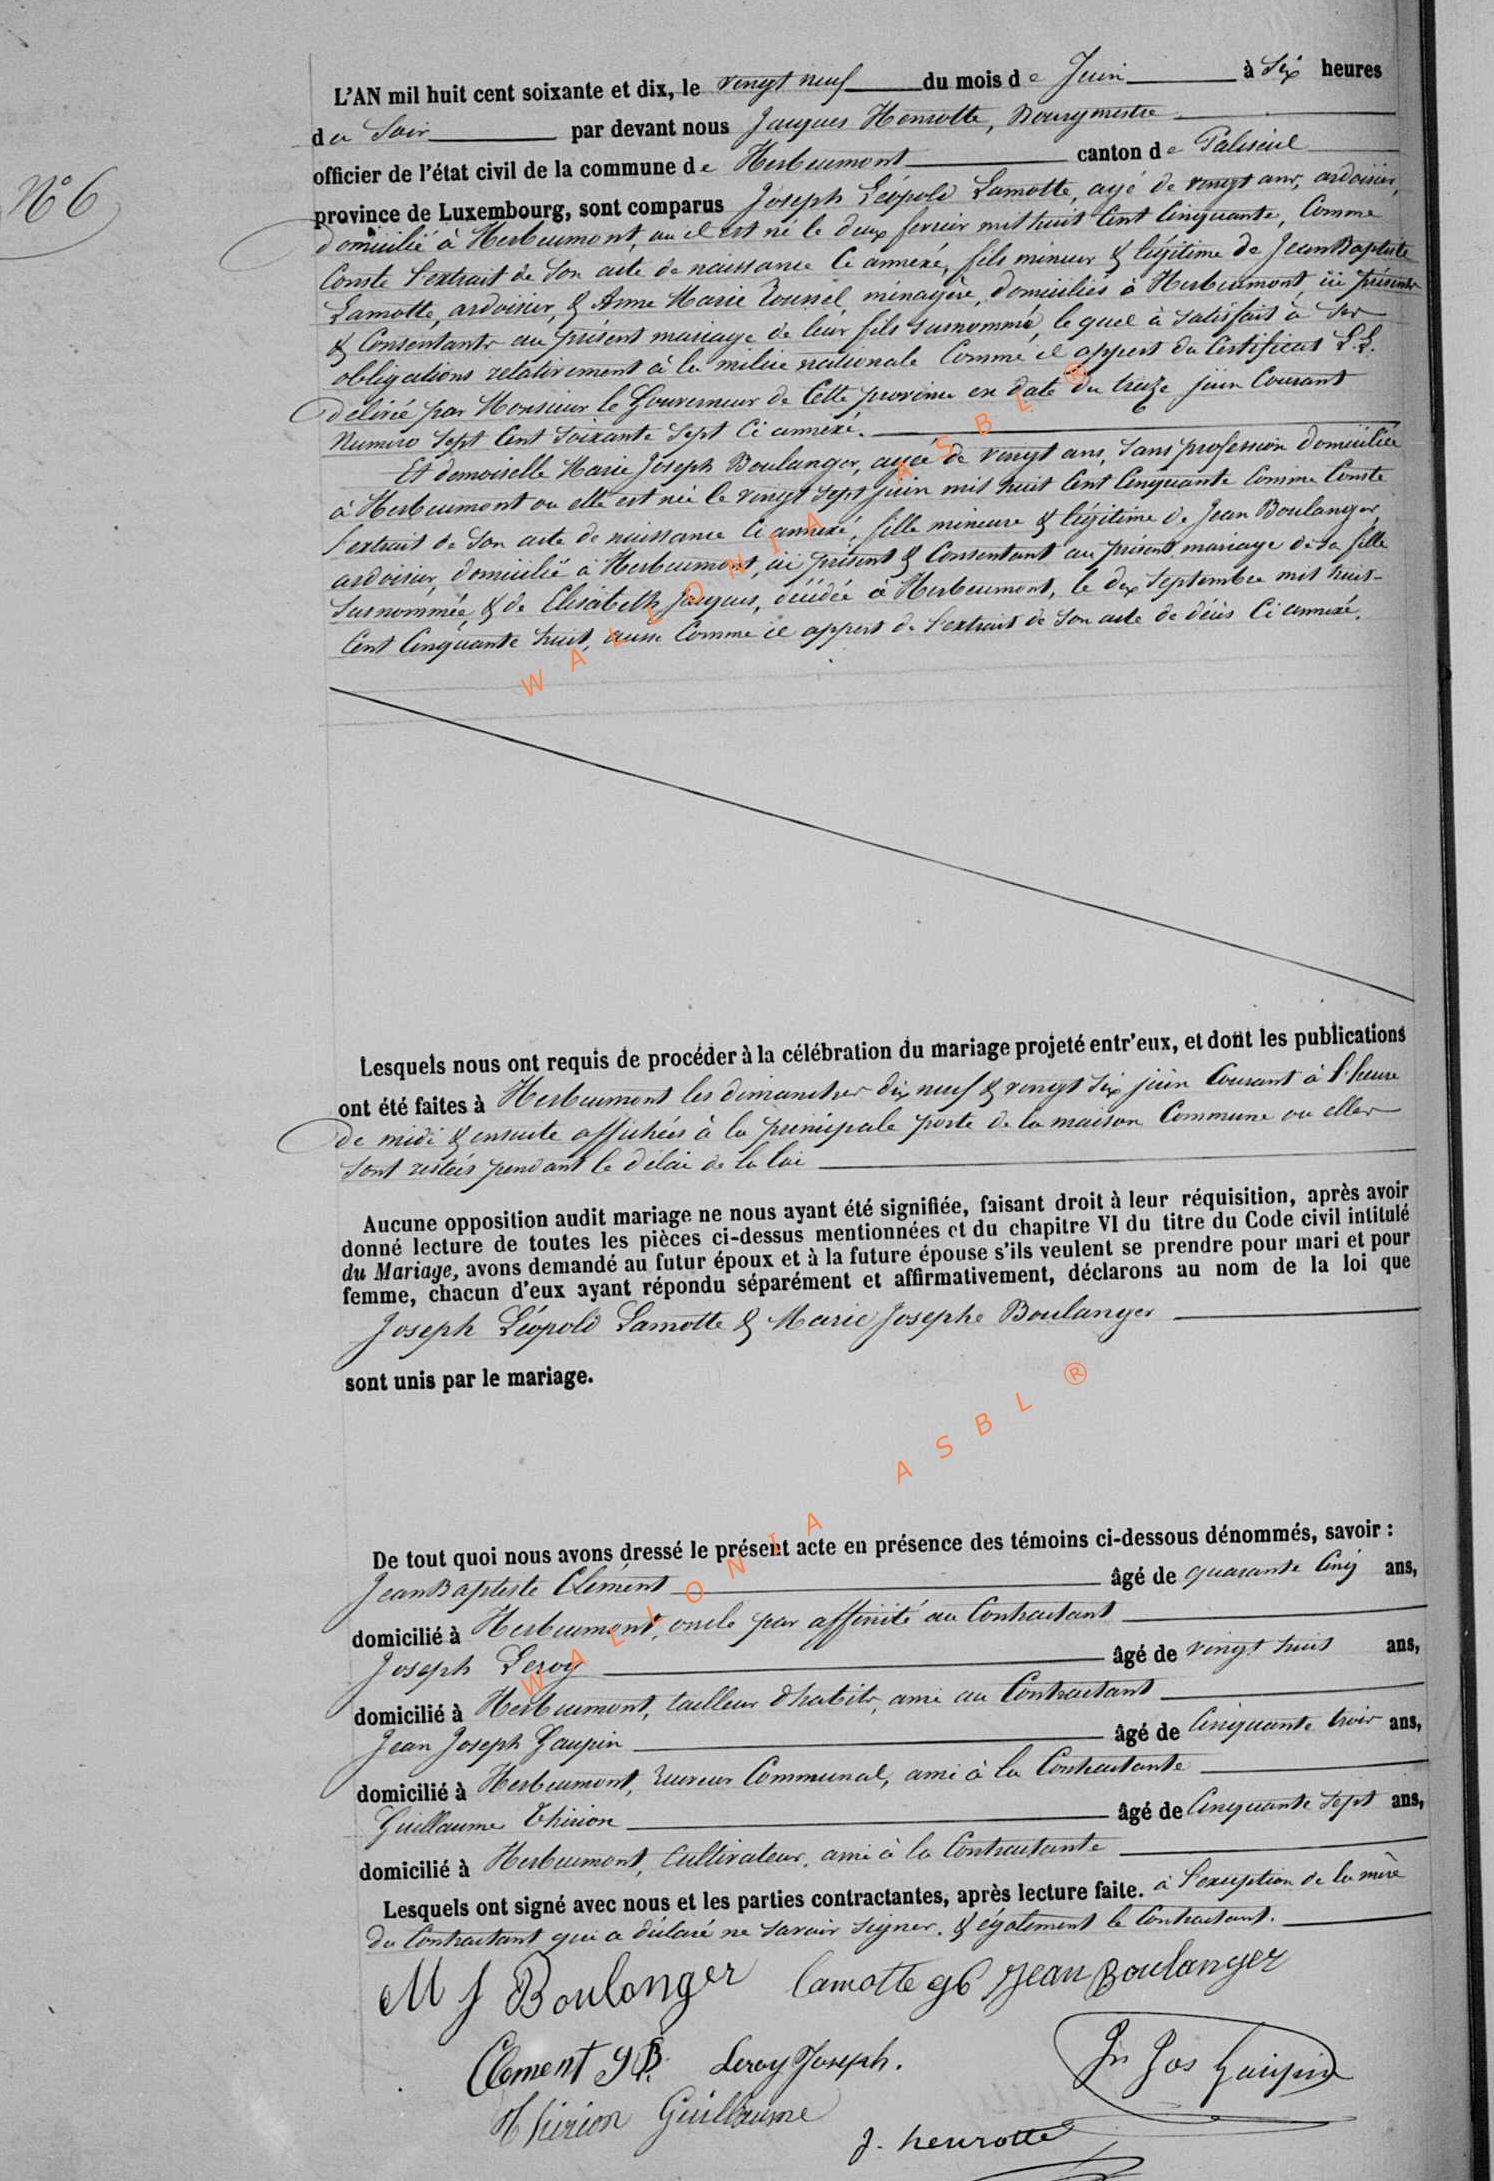 N° 6
L'AN mil huit cent soixante et dix, le vingt neuf du mois de Juin à Six heures
du Soir par devant nous Jacques Henrotte, Bourgmestre
officier de l'état civil de la commune de Herbeumont canton de Paliseul
province de Luxembourg, sont comparus Joseph Léopold Lamotte, agé de vingt ans, ardoisier,
domicilié à Herbeumont, ou il est né le deux fevrier mil huit Cent Cinquante, Comme
Conste l'extrait de Son acte de naissance Ci annéxé, fils mineur & légitime de Jean Baptiste
Lamotte, ardoisier, & Anne Marie Roussel, ménagère, domiciliés à Herbeumont, ici présents
& Consentants au présent mariage de leur fils susnommé, lequel à satisfait à Ses
obligations relativement à la milice nationale Comme il appert du Certificat L.L.
délivré par Monsieur le Gouverneur de Cette province en date du treize juin Courant
Numero Sept Cent Soixante Sept Ci annéxé.
Et demoiselle Marie Joseph Boulanger, agée de vingt ans, Sans profession domiciliée
à Herbeumont ou elle est née le vingt Sept juin mil huit Cent Cinquante Comme Conste
l'extrait de Son acte de naissance Ci annéxé, fille mineure & légitime de Jean Boulanger,
ardoisier, domicilié à Herbeumont, ici présent & Consentant au présent mariage de Sa fille
Susnommée, & de Elisabeth Jacques, décédée à Herbeumont, le dix Septembre mil huit-
Cent Cinquante huit, aussi Comme il appert de l'extrait de Son acte de décès Ci annéxé.
WALLONIA ASBL ®
Lesquels nous ont requis de procéder à la célébration du mariage projeté entr'eux, et dont les publications
ont été faites à Herbeumont les dimanches dix neuf & vingt Six juin Courant à l'heure
de midi & ensuite affichées à la principale porte de la maison Commune ou elles
Sont restées pendant le délai de la loi
Aucune opposition audit mariage ne nous ayant été signifiée, faisant droit à leur réquisition, après avoir
donné lecture de toutes les pièces ci-dessus mentionnées et du chapitre VI du titre du Code civil intitulé
du Mariage, avons demandé au futur époux et à la future épouse s'ils veulent se prendre pour mari et pour
femme, chacun d'eux ayant répondu séparément et affirmativement, déclarons au nom de la loi que
Joseph Léopold Lamotte & Marie Josephe Boulanger
sont unis par le mariage.
WALLONIA ASBL ®
De tout quoi nous avons dressé le présent acte en présence des témoins ci-dessous dénommés, savoir :
Jean Baptiste Clément âgé de quarante Cinq ans,
domicilié à Herbeumont, oncle par affinité au Contractant
Joseph Leroy âgé de vingt huit ans,
domicilié à Herbeumont, tailleur d'habits, ami au Contractant
Jean Joseph Gaupin âgé de Cinquante trois ans,
domicilié à Herbeumont, Receveur Communal, ami à la Contractante
Guillaume Thirion âgé de Cinquante Sept ans,
domicilié à Herbeumont, Cultivateur, ami à la Contractante
Lesquels ont signé avec nous et les parties contractantes, après lecture faite. à l'exception de la mère
du Contractant qui a déclaré ne savoir signer. & également le Contractant.
M J Boulanger lamotte gb Jean Boulanger
Clement JB. Leroy Joseph. Jn Jos Gaupin
Thirion Guillaume
J. henrotte